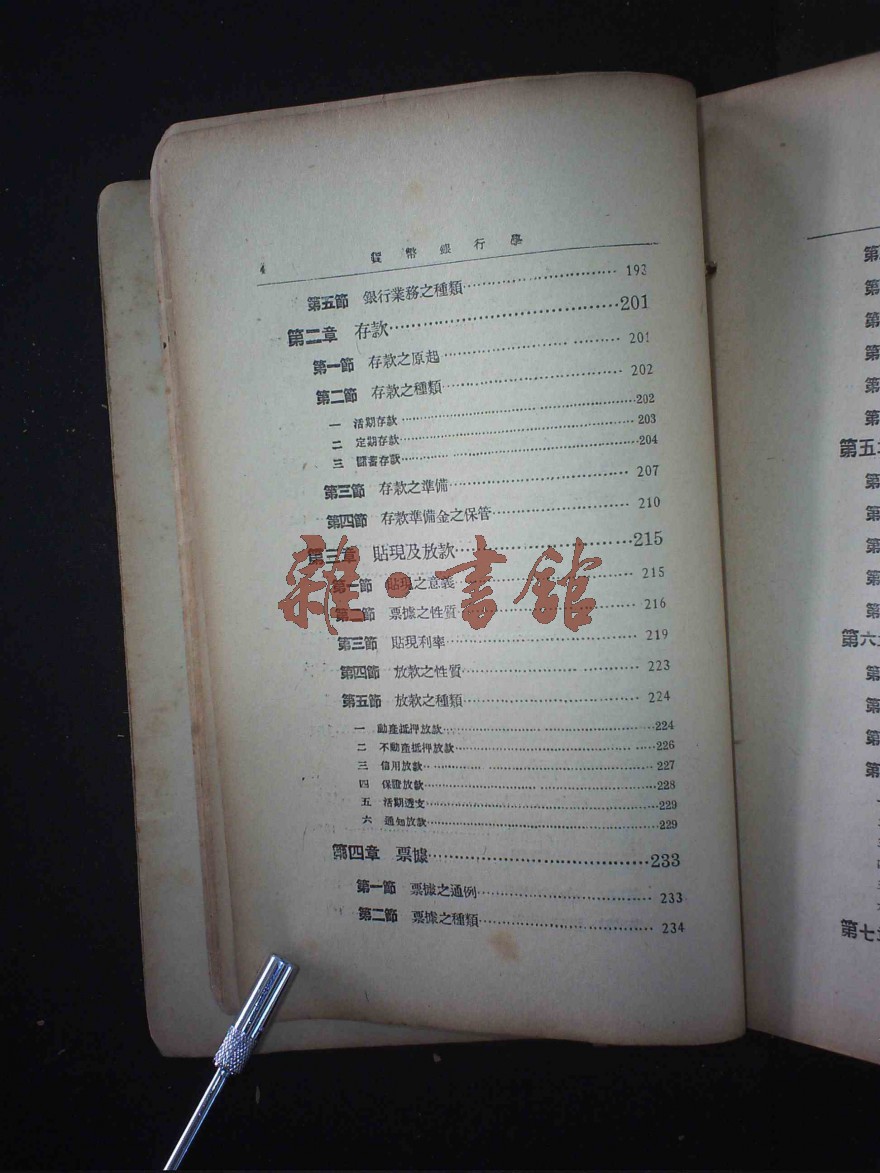 4 貨幣銀行學
第五節 銀行業務之種類 193
第二章 存款 201
第一節 存款之原起 201
第二節 存款之種類 202
一 活期存款 202
二 定期存款 203
三 儲蓄存款 204
第三節 存款之準備 207
第四節 存款準備金之保管 210
第三章 貼現及放款 215
第一節 貼現之意義 215
第二節 票據之性質 216
第三節 貼現利率 219
第四節 放款之性質 223
第五節 放款之種類 224
一 動產抵押放款 224
二 不動產抵押放款 226
三 信用放款 227
四 保證放款 228
五 活期透支 229
六 通知放款 229
第四章 票據 233
第一節 票據之通例 233
第二節 票據之種類 234
雜·書館
第五
第六
第七